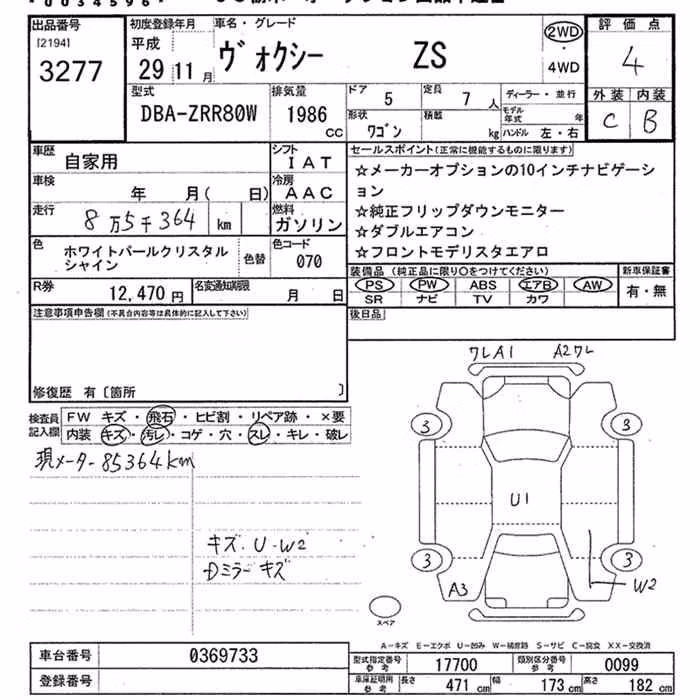 *0034596*
出品番号
[2194]
3277
初度登録年月
平成
29 11 月
車名・グレード
ヴォクシー ZS
2WD
・
4WD
評価点
4
外装 内装
C B
型式
DBA-ZRR80W
排気量
1986 cc
ドア
5
定員
7 人
形状
ワゴン
積載
kg
ディーラー・並行
モデル年式 年
ハンドル 左・右
車歴
自家用
シフト
IAT
車検
年 月( 日)
冷房
AAC
走行
8万5千364 km
燃料
ガソリン
色
ホワイトパールクリスタル
シャイン
色替
色コード
070
R券
12,470 円
名変通知期限
月 日
セールスポイント(正常に機能するものに限ります)
☆メーカーオプションの10インチナビゲーシ
ョン
☆純正フリップダウンモニター
☆ダブルエアコン
☆フロントモデリスタエアロ
装備品(純正品に限り○をつけてください)
PS PW ABS エアB AW
SR ナビ TV カワ
新車保証書
有・無
後日品
注意事項申告欄(不具合内容等は具体的に記入して下さい)
修復歴 有〔箇所 〕
検査員
記入欄
FW キズ・飛石・ヒビ割・リペア跡・×要
内装 キズ・汚レ・コゲ・穴・スレ・キレ・破レ
現メーター85364km
キズ U・W2
Dミラーキズ
ワレA1 A2ワレ
3 3
U1
3 3
A3 W2
スペア
A－キズ E－エクボ U－凹み W－補修跡 S－サビ C－腐食 XX－交換済
車台番号
0369733
登録番号
型式指定番号
参考
17700
類別区分番号
参考
0099
車庫証明用
参考
長さ 471 cm 幅 173 cm 高さ 182 cm